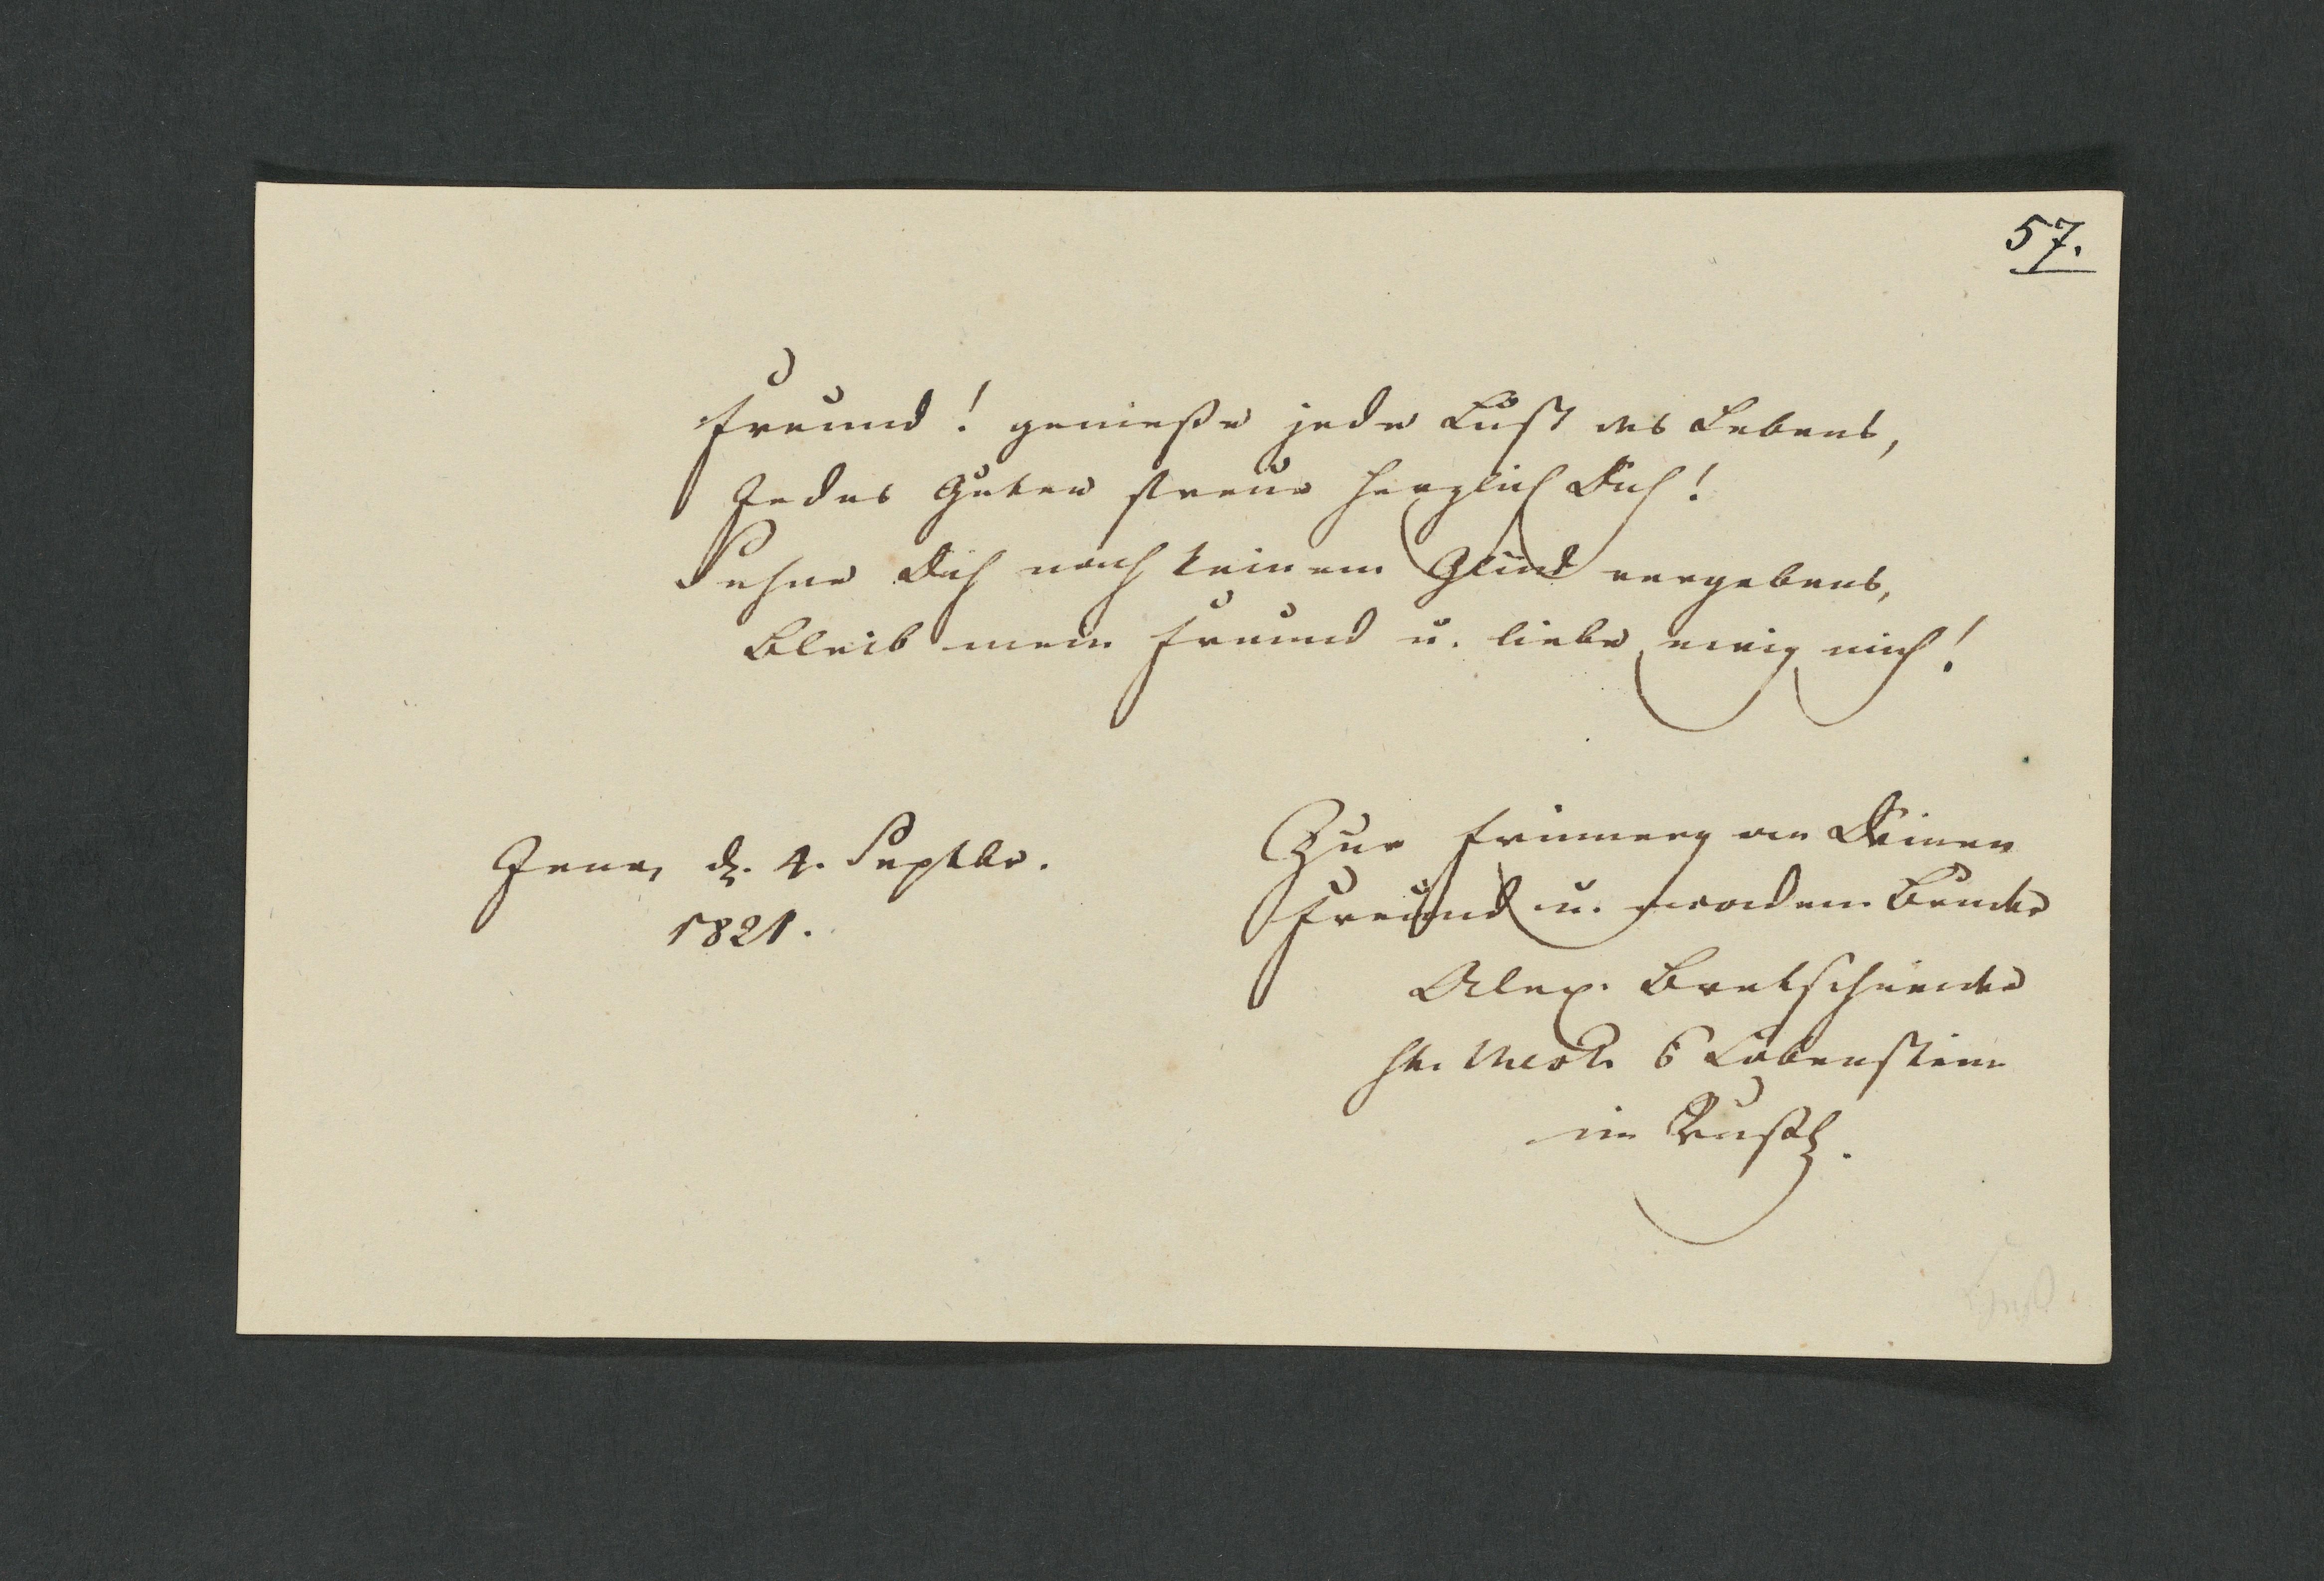 57.
Freund! genieße jede Lust des Lebens,
Jedes Guten freue herzlich Dich!
Sehne Dich nach keinem Glück vergebens,
Bleib mein Freund u. liebe ewig mich!
Jena, d. 4. Septbr.
1821.
Zur Erinnerg an Deinen
Freund u. Bruder
Alex. Bretschneider
Lobenstein
im